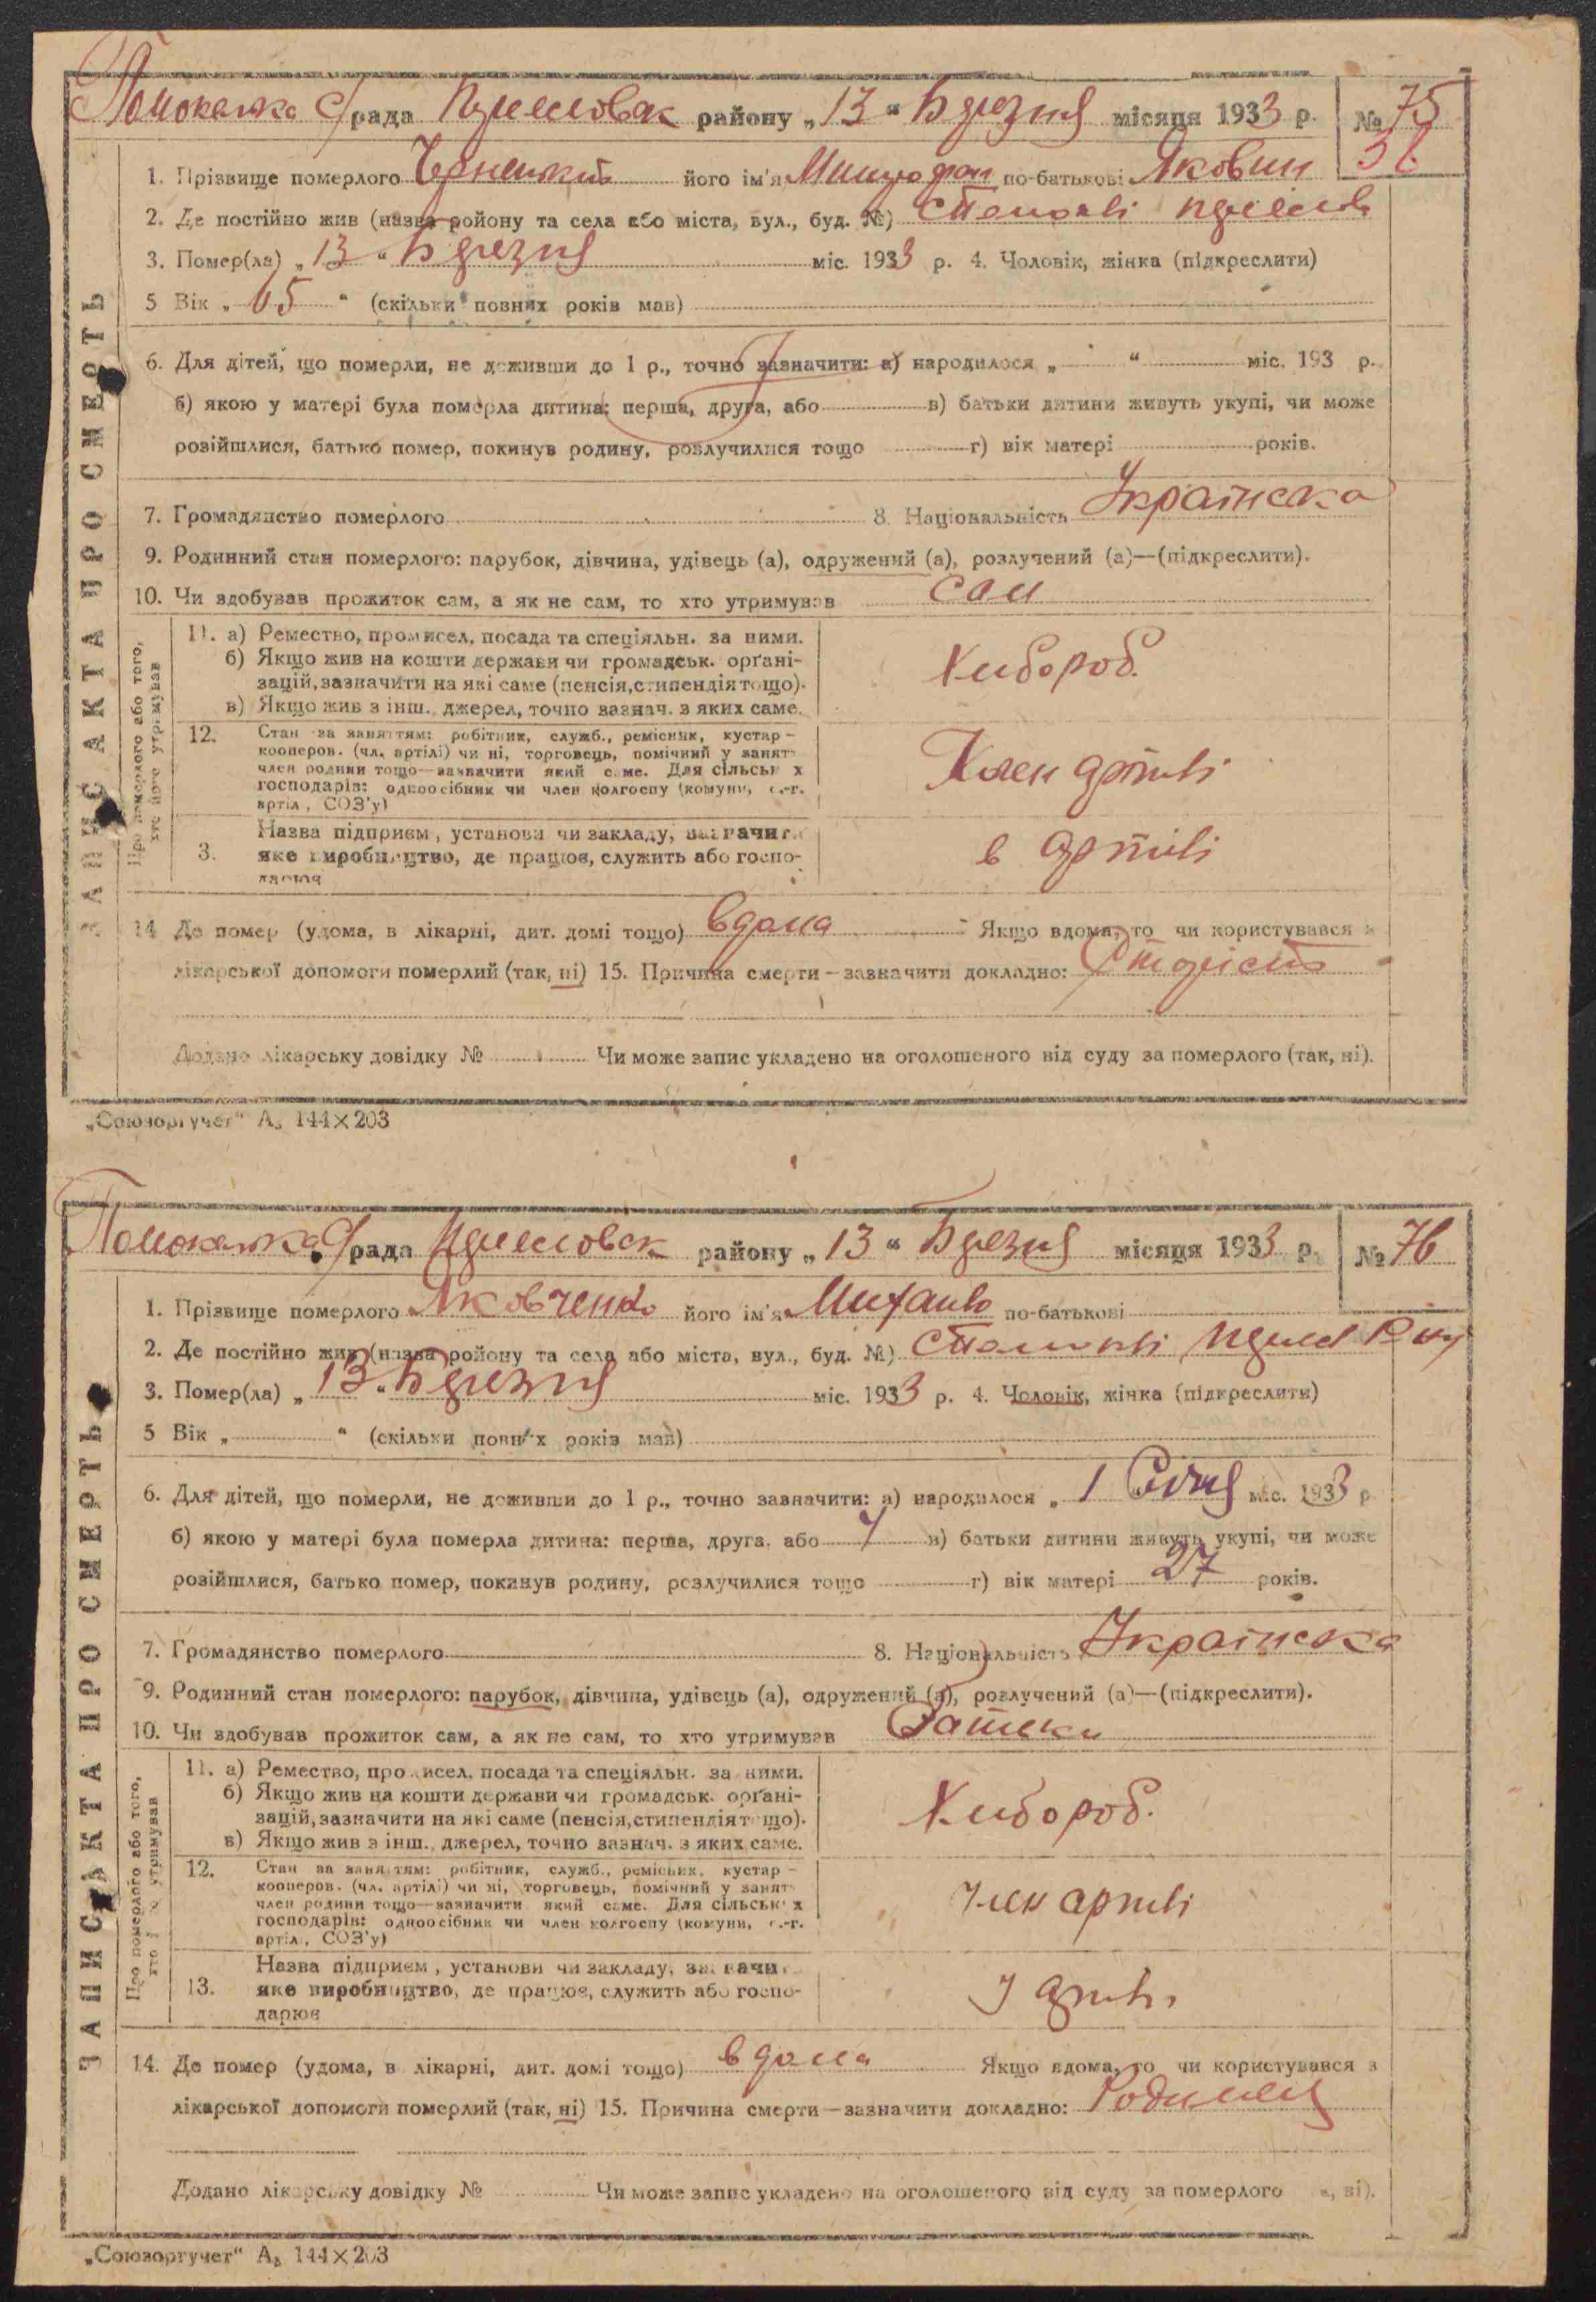 рада району „13“ Березня місяця 1933 р. № 75
1. Прізвище померлого Чернецкий його ім'я по-батькові Якович
2. Де постійно жив (назва ройону та села або міста, вул., буд. №)
3. Помер(ла) „13“ Березня міс. 1933 р. 4. Чоловік, жінка (підкреслити)
5 Вік „65“ (скільки повних років мав)
6. Для дітей, що померли, не доживши до 1 р., точно зазначити: а) народилося „ “ міс. 193 р.
б) якою у матері була померла дитина: перша, друга, або в) батьки дитини живуть укупі, чи може
розійшлися, батько помер, покинув родину, розлучилися тощо г) вік матері років.
7. Громадянство померлого 8. Національність Українска
9. Родинний стан померлого: парубок, дівчина, удівець (а), одружений (а), розлучений (а)—(підкреслити).
10. Чи здобував прожиток сам, а як не сам, то хто утримував сам
ЗАПИС АКТА ПРО СМЕРТЬ
Про померлого або того, хто його утримував
11. а) Ремество, промисел, посада та спеціяльн. за ними.
б) Якщо жив на кошти держави чи громадськ. орґані-
зацій, зазначити на які саме (пенсія, стипендія тощо).
в) Якщо жив з інш. джерел, точно зазнач. з яких саме.
Хлібороб.
12. Стан за заняттям: робітник, служб., ремісник, кустар —
кооперов. (чл. артілі) чи ні, торговець, помічний у занят-
член родини тощо—зазначити який саме. Для сільськ х
господарів: одноосібник чи член колгоспу (комуни, с.-г.
артіл, СОЗ'у)
Член артілі
3. Назва підприєм, установи чи закладу, зазначити
яке виробництво, де працює, служить або госпо-
дарює
в артілі
14 Де помер (удома, в лікарні, дит. домі тощо) вдома Якщо вдома, то чи користувався з
лікарської допомоги померлий (так, ні) 15. Причина смерти — зазначити докладно: Старість
Додано лікарську довідку № Чи може запис укладено на оголошеного від суду за померлого (так, ні).
„Союзоргучет“ А₅ 144×203
рада району „13“ Березня місяця 1933 р. № 76
1. Прізвище померлого Яковченко його ім'я Михайло по-батькові
2. Де постійно жив (назва ройону та села або міста, вул., буд. №)
3. Помер(ла) „13“ Березня міс. 1933 р. 4. Чоловік, жінка (підкреслити)
5 Вік „ “ (скільки повних років мав)
6. Для дітей, що померли, не доживши до 1 р., точно зазначити: а) народилося „1 Січня міс. 1933 р
б) якою у матері була померла дитина: перша, друга, або в) батьки дитини живуть укупі, чи може
розійшлися, батько помер, покинув родину, розлучилися тощо г) вік матері 27 років.
7. Громадянство померлого 8. Національність Українска
9. Родинний стан померлого: парубок, дівчина, удівець (а), одружений (а), розлучений (а)—(підкреслити).
10. Чи здобував прожиток сам, а як не сам, то хто утримував Батьки
ЗАПИС АКТА ПРО СМЕРТЬ
Про померлого або того, хто його утримував
11. а) Ремество, промисел, посада та спеціяльн. за ними.
б) Якщо жив на кошти держави чи громадськ. орґані-
зацій, зазначити на які саме (пенсія, стипендія тощо).
в) Якщо жив з інш. джерел, точно зазнач. з яких саме.
Хлібороб.
12. Стан за заняттям: робітник, служб., ремісник, кустар —
кооперов. (чл. артілі) чи ні, торговець, помічний у занят-
член родини тощо—зазначити який саме. Для сільськ х
господарів: одноосібник чи член колгоспу (комуни, с.-г.
артіл., СОЗ'у)
Член артілі
13. Назва підприєм, установи чи закладу, зазначити
яке виробництво, де працює, служить або госпо-
дарює
У артілі
14. Де помер (удома, в лікарні, дит. домі тощо) вдома Якщо вдома, то чи користувався з
лікарської допомоги померлий (так, ні) 15. Причина смерти — зазначити докладно: Родимец
Додано лікарську довідку № Чи може запис укладено на оголошеного від суду за померлого , ні).
„Союзоргучет“ А₅ 144×203